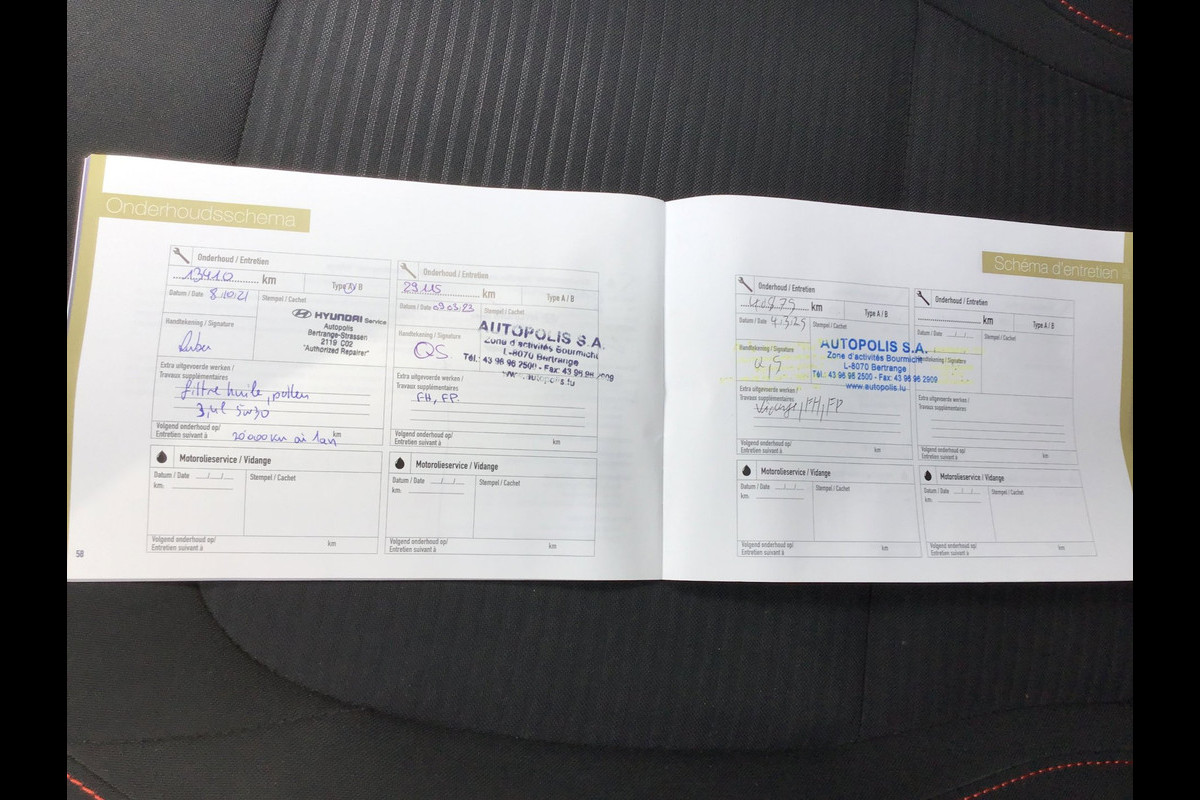 Onderhoudsschema
Onderhoud / Entretien
13410 km Type A / B
Datum / Date 8.10.21 Stempel / Cachet
HYUNDAI Service
Autopolis
Bertrange-Strassen
2119 C02
"Authorized Repairer"
Handtekening / Signature
Extra uitgevoerde werken /
Travaux supplémentaires
filtre huile, pollen
3,4l 5w30
Volgend onderhoud op/
Entretien suivant à 20000 km ou 1an km
Motorolieservice / Vidange
Datum / Date _ / _ / _ Stempel / Cachet
km:
Volgend onderhoud op/
Entretien suivant à km
58
Onderhoud / Entretien
29115 km Type A / B
Datum / Date 09.03.23 Stempel / Cachet
Handtekening / Signature
QS
AUTOPOLIS S.A.
Zone d'activités Bourmicht
L-8070 Bertrange
Tél.: 43 96 96 2500 - Fax: 43 96 96
Extra uitgevoerde werken /
Travaux supplémentaires
FH, FP.
Volgend onderhoud op/
Entretien suivant à km
Motorolieservice / Vidange
Datum / Date _ / _ / _ Stempel / Cachet
km:
Volgend onderhoud op/
Entretien suivant à km
Schéma d'entretien
Onderhoud / Entretien
km Type A / B
Datum / Date 4.3.25 Stempel / Cachet
Handtekening / Signature
AUTOPOLIS S.A.
Zone d'activités Bourmicht
L-8070 Bertrange
Tél.: 43 96 96 2500 - Fax: 43 96 96 2909
www.autopolis.lu
Extra uitgevoerde werken /
Travaux supplémentaires
Vidange, FH, FP
Volgend onderhoud op/
Entretien suivant à km
Motorolieservice / Vidange
Datum / Date _ / _ / _ Stempel / Cachet
km:
Volgend onderhoud op/
Entretien suivant à km
Onderhoud / Entretien
km Type A / B
Datum / Date _ / _ / _ Stempel / Cachet
Handtekening / Signature
Extra uitgevoerde werken /
Travaux supplémentaires
Volgend onderhoud op/
Entretien suivant à km
Motorolieservice / Vidange
Datum / Date _ / _ / _ Stempel / Cachet
km:
Volgend onderhoud op/
Entretien suivant à km